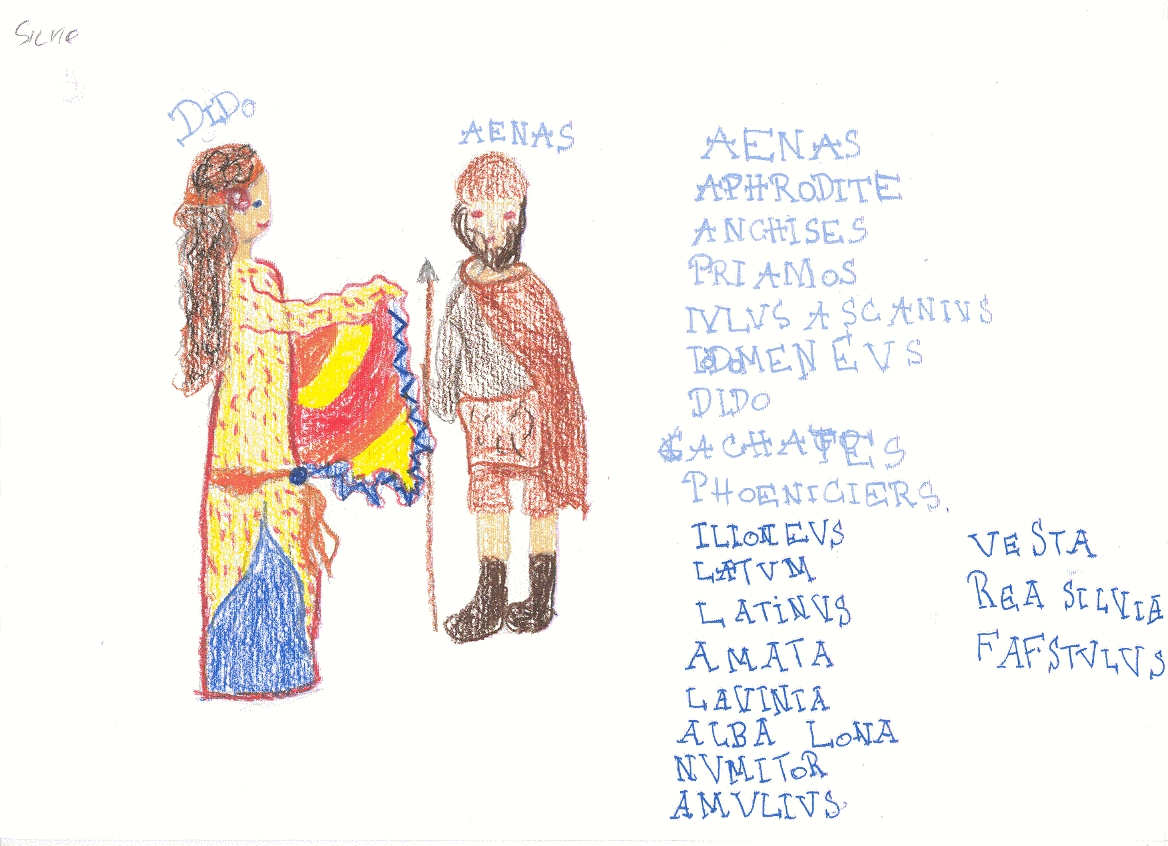 Signe
DIDO
AENAS
AENAS
APHRODITE
ANCHISES
PRIAMOS
IVLVS ASCANIVS
IDOMENEVS
DIDO
ACHATES
PHOENICIERS.
ILIONEVS
LATVM
LATINVS
AMATA
LAVINIA
ALBA LONA
NVMITOR
AMVLIVS
VESTA
REA SILVIA
FAFSTVLVS